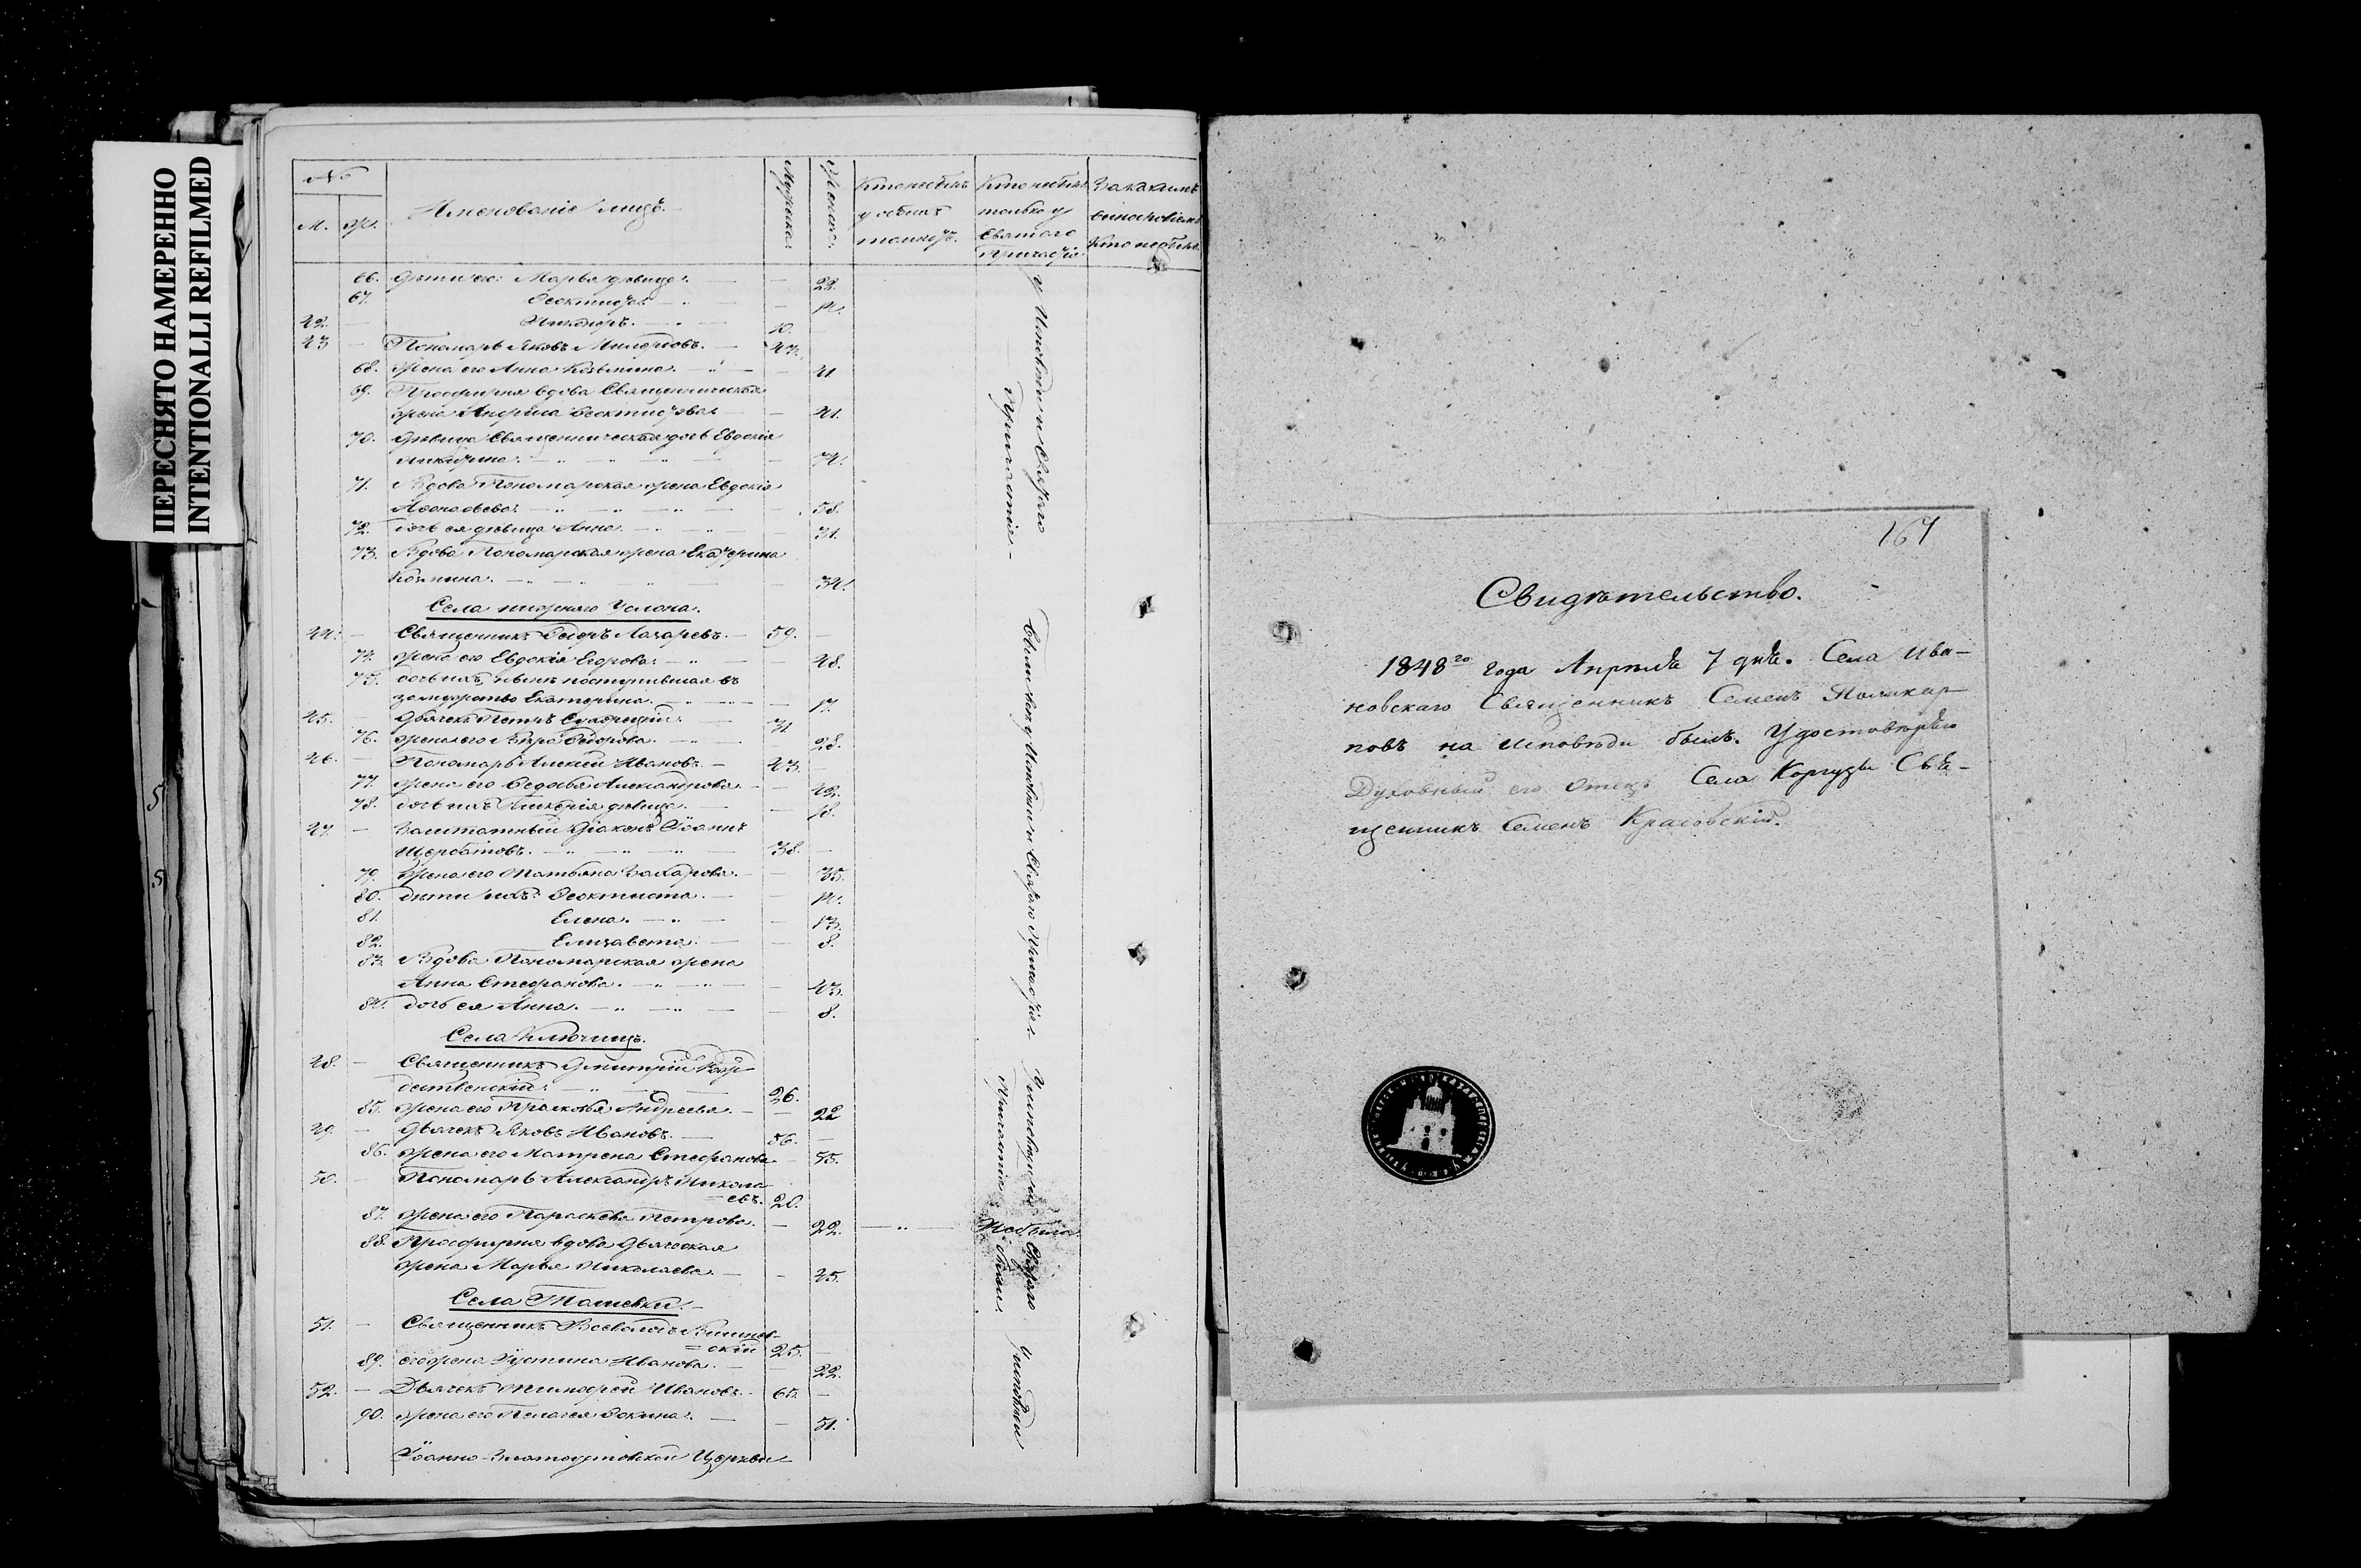 ПЕРЕСНЯТО НАМЕРЕННО
INTENTIONALLI REFILMED
№
М. Ж.
Именованіе лицъ.
Мужеска.
Женска.
Кто не былъ
у обоихъ
Кто не былъ
только у
Святаго
Причастія
За какимъ
Кто не былъ
66. Дѣти его: Марья девица. 22.
67. Феоктиста 14.
42. Никаноръ. 10.
43 Пономарь Яковъ 47.
68. Жена его Анна Козьмина. 41
69. Просфирня вдова Священническая
жена Агафiа Феоктистова 41.
70. Девица Священническая дочь Евдокія
Никитина. 74.
71. Вдова Пономарская жена Евдокія
58.
72. Дочь ея девица Анна. 31.
73. Вдова Пономарская жена Екатерина
34.
У Исповѣди и Святаго
Причастія
Села нижняго Услона.
44. Священникъ Ѳедоръ Лазаревъ. 59.
74. жена его Евдокія Егорова. 48.
75. дочь ихъ, нынѣ поступившая въ
замужество Екатерина. 17.
45. Дьячекъ Петръ 31
76. жена его Вѣра Ѳедорова. 28.
46. Пономарь Алексей Ивановъ. 43.
77. жена его Федосья Александрова. 42.
78. дочь ихъ Гликерія девица. 18.
47. Заштатный Діаконъ Іоаннъ
Щербатовъ. 38.
79. Жена его Татьяна Захарова. 35.
80. дѣти ихъ: Феоктиста. 14.
81. Елена. 13.
82. Елизавета. 8.
83. Вдова Пономарская жена
Анна Стефанова. 43.
84. дочь ея Анна. 8.
Села Ключищъ.
48. Священникъ Дмитрій Рож-
дественскій. 26.
85. жена его Прасковья Андреева. 22
49. Дьячекъ Яковъ Ивановъ. 56.
86. жена его Матрена Стефанова 55.
50. Пономарь Александръ Никола-
евъ. 26.
87. жена его Параскева Петрова. 22. Не была
88. Просфирня вдова Дьяческая
жена Марья Николаева. 45.
Села Ташевки.
51. Священникъ Всеволодъ Вишнев-
скій 25.
89. его жена Іустина Иванова. 22.
52. Дьячекъ Тимофей Ивановъ. 65.
90. жена его Пелагея Фокина. 51.
У исповѣди
Іоанно-Златоустовской Церкви
167
Свидѣтельство.
1848го года Апрѣля 7 дня. Села Ива-
новскаго Священникъ Семенъ Поликар-
повъ на исповѣди былъ. Удостовѣряю
Духовный его Отецъ Села Коргузы Свя-
щенникъ Семенъ Красовскій.
5
5